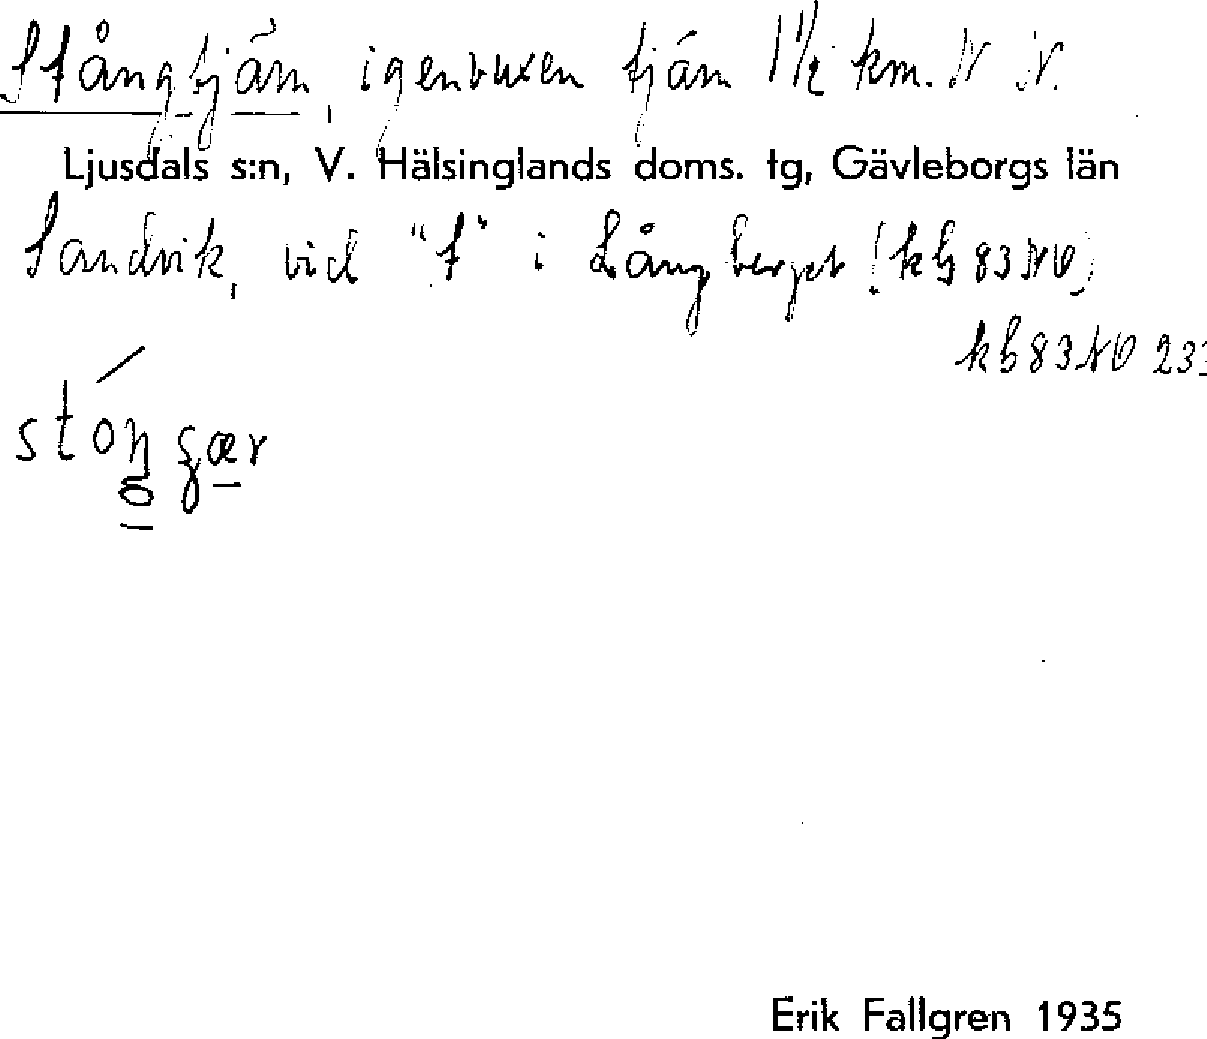 Stångtjärn, igenvuxen tjärn 1 1/2 km. N N.
Ljusdals s:n, V. Hälsinglands doms. tg, Gävleborgs län
Sandvik, vid "t" i Långberget (kb 83 NO)
kb 83 NO 233
Erik Fallgren 1935